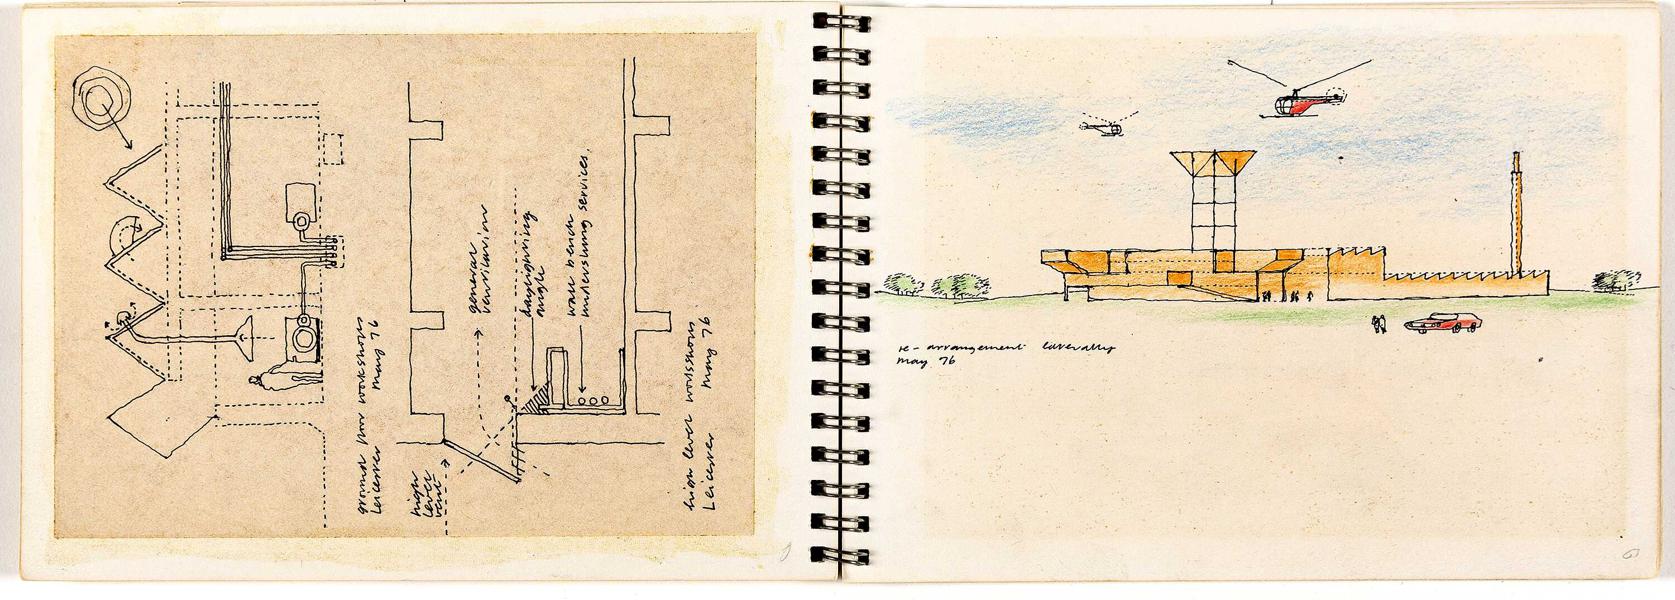 ground floor workshops
Leicester May 76
high
level
vent
general
ventilation
daylighting
angle
wall bench
understung services.
high level workshops
Leicester May 76
re-arrangement laterally
May 76
6